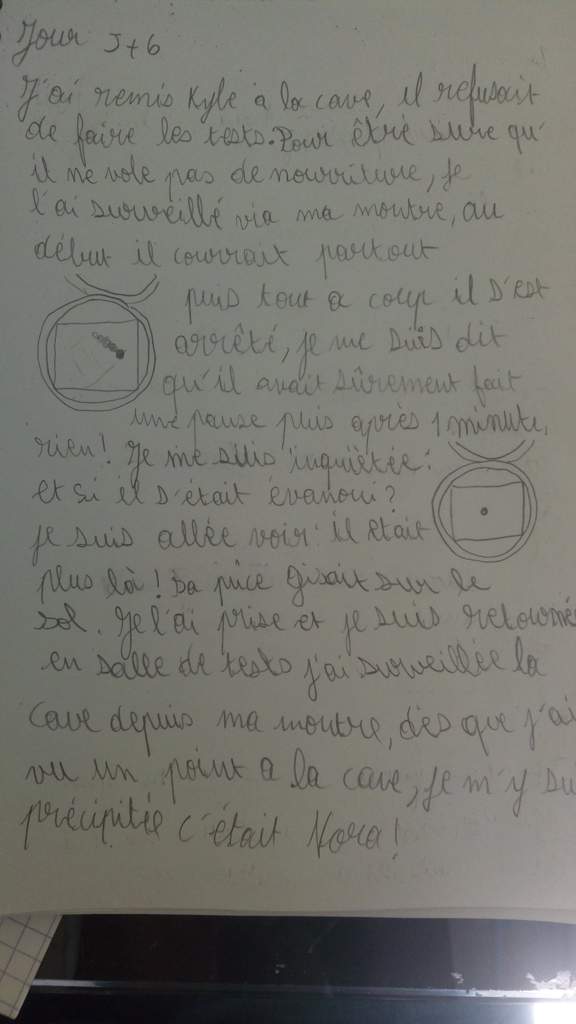 Jour J+6
J'ai remis Kyle à la cave, il refusait
de faire les tests. Pour être sure qu'
il ne vole pas de nourriture, je
l'ai surveillé via ma montre, au
début il courrait partout
puis tout a coup il s'est
arrêté, je me suis dit
qu'il avait sûrement fait
une pause puis après 1 minute,
rien! Je me suis inquiètée:
et si il s'était évanoui?
je suis allée voir: il était
plus là! Sa puce gisait sur le
sol. Je l'ai prise et je suis retourné
en salle de tests j'ai surveillée la
cave depuis ma montre, dès que j'ai
vu un point a la cave, je m'y sui
précipitée c'était Nora!